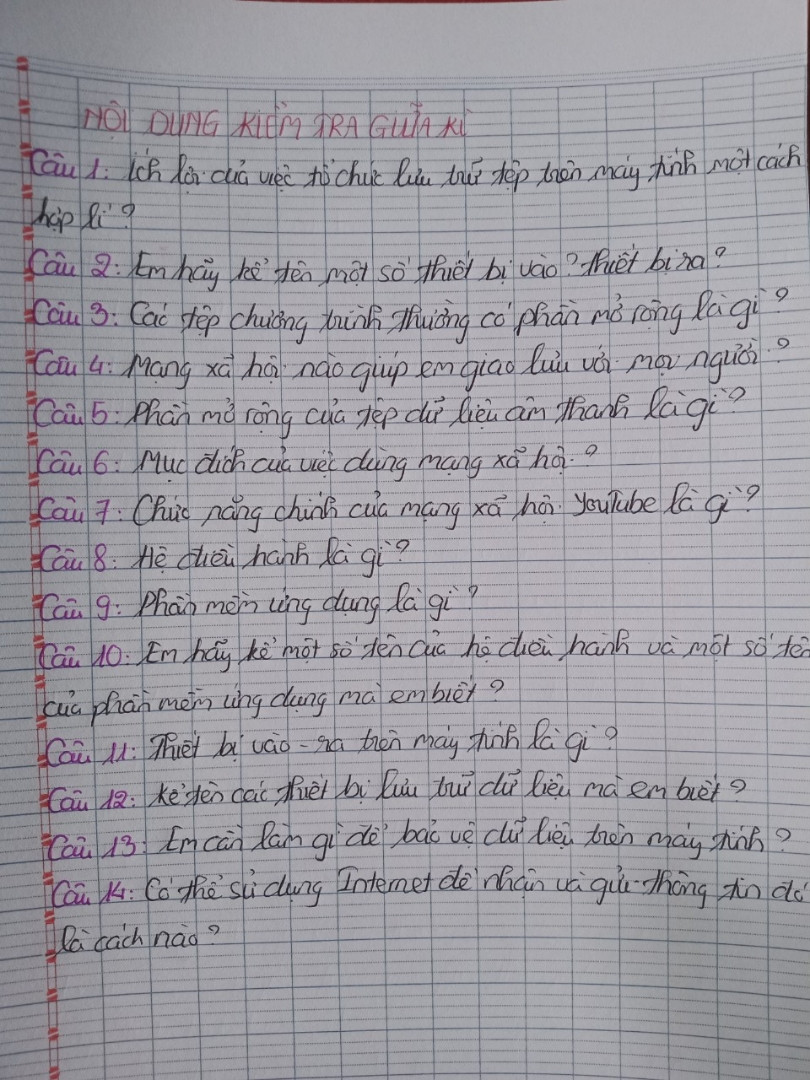 NỘI DUNG KIỂM TRA GIỮA KÌ
Câu 1: Ích lợi của việc tổ chức lưu trữ tệp trên máy tính một cách
hợp lí?
Câu 2: Em hãy kể tên một số thiết bị vào? thiết bị ra?
Câu 3: Các tệp chương trình thường có phần mở rộng là gì?
Câu 4: Mạng xã hội nào giúp em giao lưu với mọi người?
Câu 5: Phần mở rộng của tệp dữ liệu âm thanh là gì?
Câu 6: Mục đích của việc dùng mạng xã hội?
Câu 7: Chức năng chính của mạng xã hội YouTube là gì?
Câu 8: Hệ điều hành là gì?
Câu 9: Phần mềm ứng dụng là gì?
Câu 10: Em hãy kể một số tên của hệ điều hành và một số tên
của phần mềm ứng dụng mà em biết?
Câu 11: Thiết bị vào - ra trên máy tính là gì?
Câu 12: Kể tên các thiết bị lưu trữ dữ liệu mà em biết?
Câu 13: Em cần làm gì để bảo vệ dữ liệu trên máy tính?
Câu 14: Có thể sử dụng Internet để nhận và gửi thông tin đó
là cách nào?